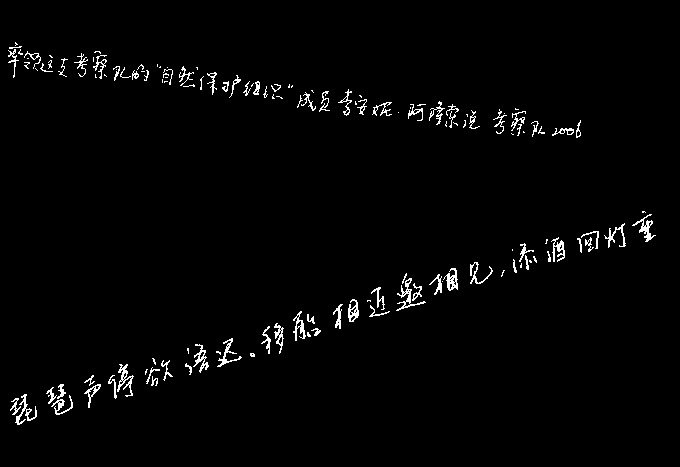 率领这支考察队的“自然保护组织”成员李安妮·阿隆索说考察队2006
琵琶声停欲语迟。移船相近邀相见,添酒回灯重